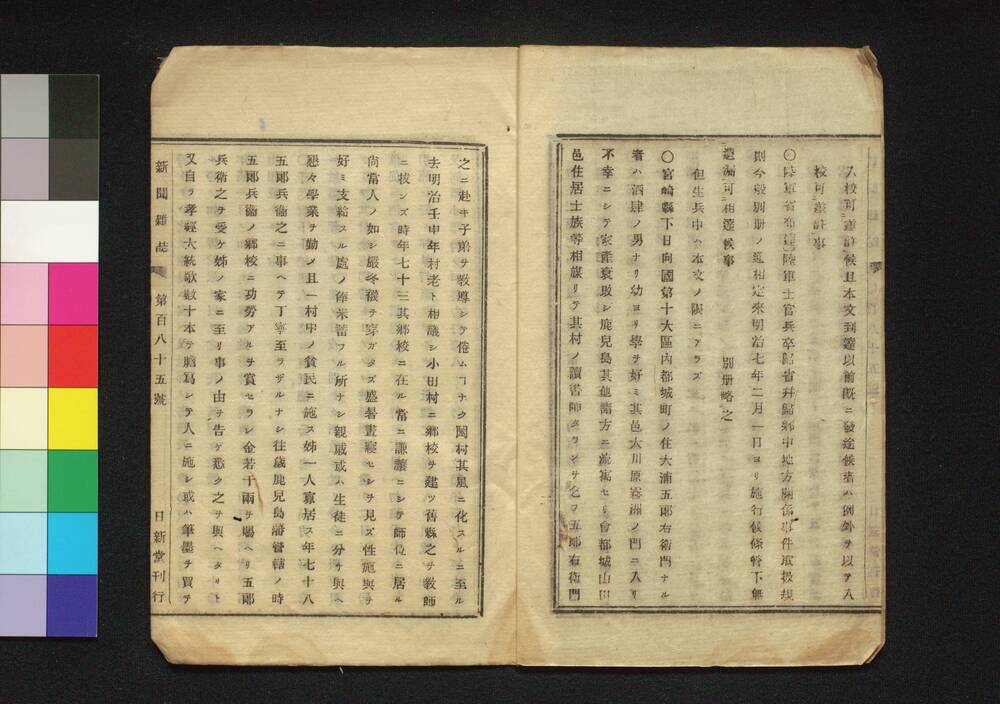 入校可差許候且本文到達以前既ニ發途候者ハ例外ヲ以テ入
校可差許事
〇陸軍省布達陸軍士官兵卒歸省幷歸鄉中地方關係事件取扱規
則今般別册ノ通相定來明治七年二月一日ヨリ施行候條管下無
遺漏可相達候事　別册略之
但生兵中ハ本文ノ限ニアラズ
〇宮崎縣下日向國第十大區内都城町ノ住大浦五郎右衞門ナル
者ハ酒肆ノ男ナリ幼ヨリ學ヲ好ミ其邑大川原霧洲ノ門ニ入リ
不幸ニシテ家產衰敗シ鹿兒島其他諸方ニ流寓セリ會都城山田
邑住居士族等相謀リテ其村ノ讀書師タランヿヲ之ヲ五郎右衞門
之ニ赴キ子弟ヲ敎導シテ倦ムヿナク闔村其風ニ化スルニ至ル
去明治壬申年村老ト相議シ小田村ニ鄉校ヲ建ツ舊縣之ヲ敎師
ニ抜ンズ時年七十三其鄉校ニ在ル常ニ謙讓ニシテ師位ニ居ル
尙常人ノ如シ嚴冬襪ヲ穿ガタズ盛暑晝寢セシヲ見ズ性施與ヲ
好ミ支給スル處ノ俸米蓄フル所ナシ親戚或ハ生徒ニ分チ與ヘ
懇々學業ヲ勤メ且一村中ノ貧民ニ施ス姊一人寡居ス年七十八
五郎兵衞之ニ事ヘテ丁寧至ラザルナシ往歲鹿兒島藩管轄ノ時
五郎兵衞ノ鄉校ニ功勞アルヲ賞セラレ金若干兩ヲ賜ヘリ五郎
兵衞之ヲ受ケ姊ノ家ニ至リ事ノ由ヲ告ゲ悉ク之ヲ與ヘタリト
又自ラ孝經大統歌數十本ヲ謄寫シテ人ニ施シ或ハ筆墨ヲ買テ
新聞雜誌　第百八十五號　日新堂刊行